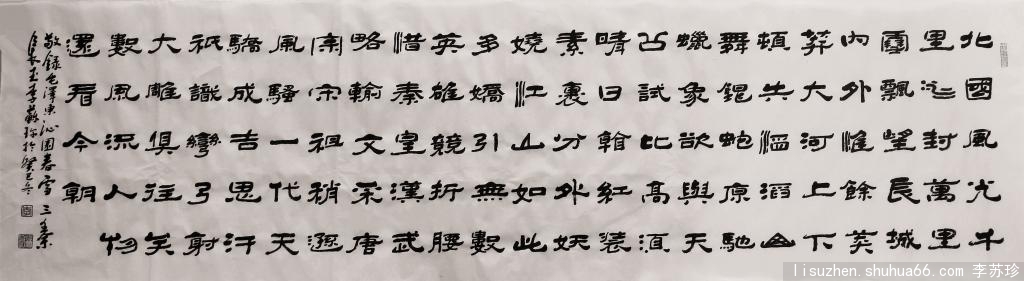 北國風光千
里冰封萬里
雪飄望長城
內外惟餘莽
莽大河上下
頓失滔滔山
舞銀蛇原馳
蠟象欲與天
公試比高須
晴日看紅裝
素裹分外妖
嬈江山如此
多嬌引無數
英雄競折腰
惜秦皇漢武
略輸文采唐
宗宋祖稍遜
風騷一代天
驕成吉思汗
祇識彎弓射
大雕俱往矣
數風流人物
還看今朝
敬錄毛澤東沁園春雪 三秦
李蘇珍於癸巳年
lisuzhen.shuhua66.com 李苏珍